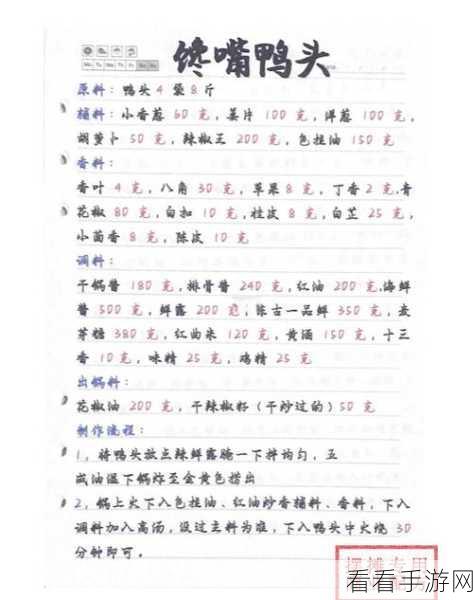 馋嘴鸭头
Mo Tu We Th Fr Sa Su
原料：鸭头 4 袋 8 斤
辅料：小香葱 60 克，姜片 100 克，洋葱 100 克，
胡萝卜 50 克，辣椒王 200 克，色拉油 150 克
香料：
香叶 4 克，八角 30 克，草果 8 克，丁香 2 克，青
花椒 80 克，白扣 10 克，桂皮 8 克，白芷 25 克，
小茴香 8 克，陈皮 10 克
调料：
干锅酱 180 克，排骨酱 240 克，红油 200 克，海鲜
酱 500 克，鲜露 200 克，陈古一品鲜 350 克，麦
芽糖 380 克，红曲米 120 克，黄酒 150 克，十三
香 10 克，味精 25 克，鸡精 25 克
出锅料：
花椒油 200 克，干辣椒籽（干炒过的）50 克
制作流程：
1，将鸭头放点辣鲜露腌一下拌均匀，五
成油温下锅炸至金黄色捞出
2，锅上火下入色拉油、红油炒香辅料、香料，下入
调料加入高汤，没过主料为准，下入鸭头中火烧 30
分钟即可。
摆摊专用
看看手游网